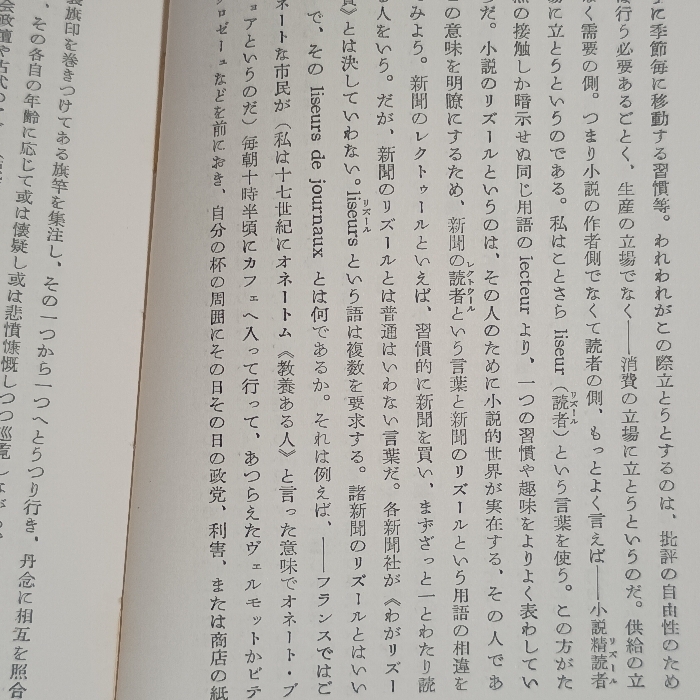 に季節毎に移動する習慣等。われわれがこの際立とうとするのは、批評の自由性のため
は行う必要あるごとく、生産の立場でなく――消費の立場に立とうというのだ。供給の立
なく需要の側。つまり小説の作者側でなくて読者の側、もっとよく言えば――小説精読者リズール
場に立とうというのである。私はことさら liseur（読者リズール）という言葉を使う。この方がた
の接触しか暗示せぬ同じ用語の lecteur より、一つの習慣や趣味をよりよく表わしてい
だ。小説のリズールというのは、その人のために小説的世界が実在する、その人であ
の意味を明瞭にするため、新聞の読者レクトゥールという言葉と新聞のリズールという用語の相違を
てみよう。新聞のレクトゥールといえば、習慣的に新聞を買い、まずざっと一とわたり読
る人をいう。だが、新聞のリズールとは普通はいわない言葉だ。各新聞社が《わがリズー
》とは決していわない。liseursリズールという語は複数を要求する。諸新聞のリズールとはいい
で、その liseurs de journaux とは何であるか。それは例えば、――フランスではご
ネートな市民が（私は十七世紀にオネートム《教養ある人》と言った意味でオネート・ブ
ョアというのだ）毎朝十時半頃にカフェへ入って行って、あつらえたヴェルモットかピテ
クロゼーュなどを前におき、自分の杯の周囲にその日その日の政党、利害、または商店の紙
旗印を巻きつけてある旗竿を集注し、その一つから一つへとうつり行き、丹念に相互を照合
、その各自の年齢に応じて或は懐疑し或は悲憤慷慨しつつ巡覧し